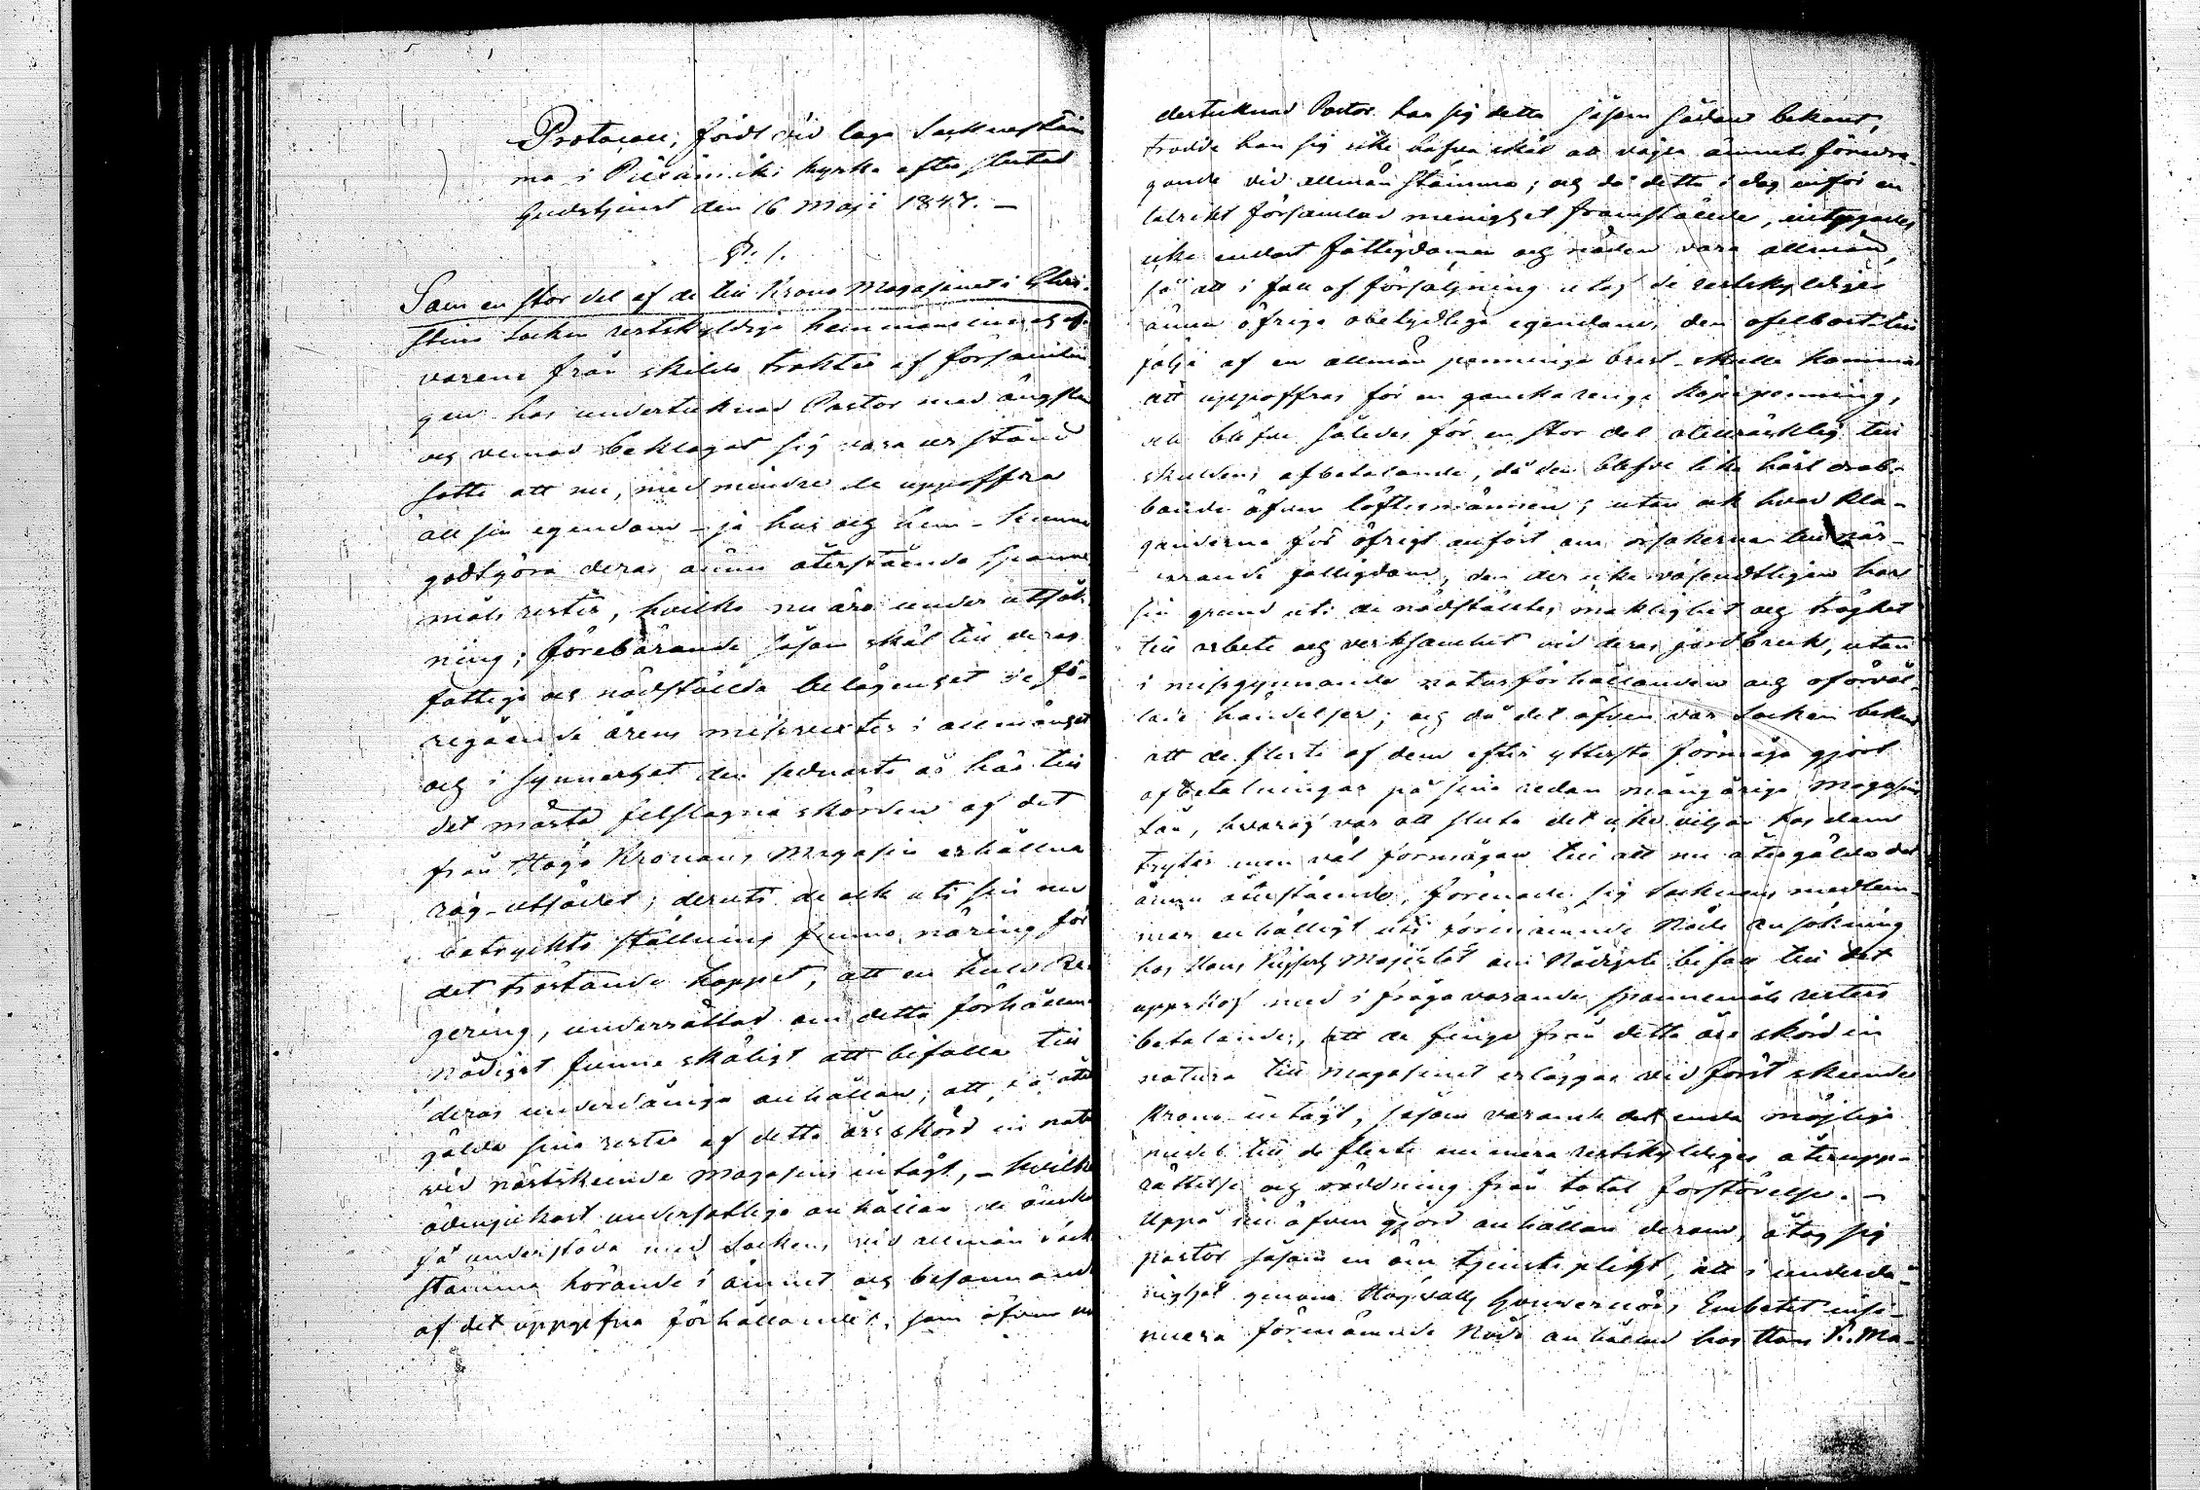 Protocoll, fördt vid laga Sockenstäm
ma i Pielisjärvi kyrka efter slutad
Gudstjenst den 16 Maji 1847. —
§. 1.
Som en stor del af de till Krono Magasinet i
stens Socken restskyldige hemmansinnehaf-
varene från skilda trakter af församlin
gen hos undertecknad Pastor med ängslan
och vemod beklagat sig vara ur stånd
satte att nu, med mindre de uppoffra
all sin egendom – ja hus och hem – kunna
godtgöra deras ännu återstående spanne
måls rester, hvilka nu äro under utsök-
ning; förebärande såsom skäl till deras
fattiga och nödstälda belägenhet de fö-
regående årens missvexter i allmänhet
och i synnerhet den sednaste år här till
det mästa felslagna skörden af det
från Höga Kronans Magasin erhållna
råg-utsädet; deruti de ock uti sin nu
betryckta ställning funno näring för
det tröstande hoppet, att en huld Re-
gering, underrättad om detta förhållande
nådigst funne skäligt att bifalla till
deras underdåniga anhållan, att få åter
gälda sina rester af detta års skörd in natu
vid nästskeende magasins intägt, – hvilken
ödmjukast undersåtliga anhållan de önska
få understöda med Sockens vid allmän sock
stämma hörande i ämnet och besannande
af det uppgifna förhållandet, som äfven un
dertecknad Pastor har sig detta såsom sådant bekant,
trodde han sig icke hafva skäl att vägra ämnets föredra-
gande vid allmän stämma; och då detta i dag inför en
talrikt församlad menighet framstäldes, intygades
icke endast fattigdomen och nöden vara allmän,
så att i fall af försäljning utaf de restskyldiges
ännu öfriga obetydliga egendom, den ofelbart till
följe af en allmän penninge brist – skulle komma
att uppoffras för en ganska ringa köpepenning,
och blefve således för en stor del otillräcklig till
skuldens afbetalande, då den blefve lika hårt drab-
bande äfven löftesmännen; utan ock hvad kla-
ganderne för öfrigt anfört om orsakerna till när-
varande fattigdom, den der icke väsendtligen har
sin grund uti de nödstäldes maklighet och tröghet
till arbete och verksamhet vid deras jordbruk, utan
i missgynnande naturförhållanden och oförvål-
lade händelser; och då det äfven var Socken bekant
att de flesta af dem efter yttersta förmåga gjort
afbetalningar på sina redan mångåriga magasins
lån, hvaraf var att sluta det icke viljan hos dem
tryter men väl förmågan till att nu återgälda det
ännu återstående, förenade sig Socknens medlem-
mar enhälligt uti förenämnde Nåde ansökning
hos Hans Kejserl. Majestät om Nådigste bifall till det
uppskof med i fråga varande spannemåls resters
betalande, att de finge från detta års skörd in
natura till Magasinet erläggas vid först skeende
Krono intägt, såsom varande det enda möjliga
medel till de flesta nu mera restskyldiges återuppr-
ättelse och räddning från total förstörelse. —
Uppå nu äfven gjord anhållan derom, åtog sig
pastor såsom en öm tjenste plikt, att i underdå-
nighet genom Högvälb. Gouvernörs Embetet insi-
nuera förenämnde Nåde anhållan hos Hans K. Ma-